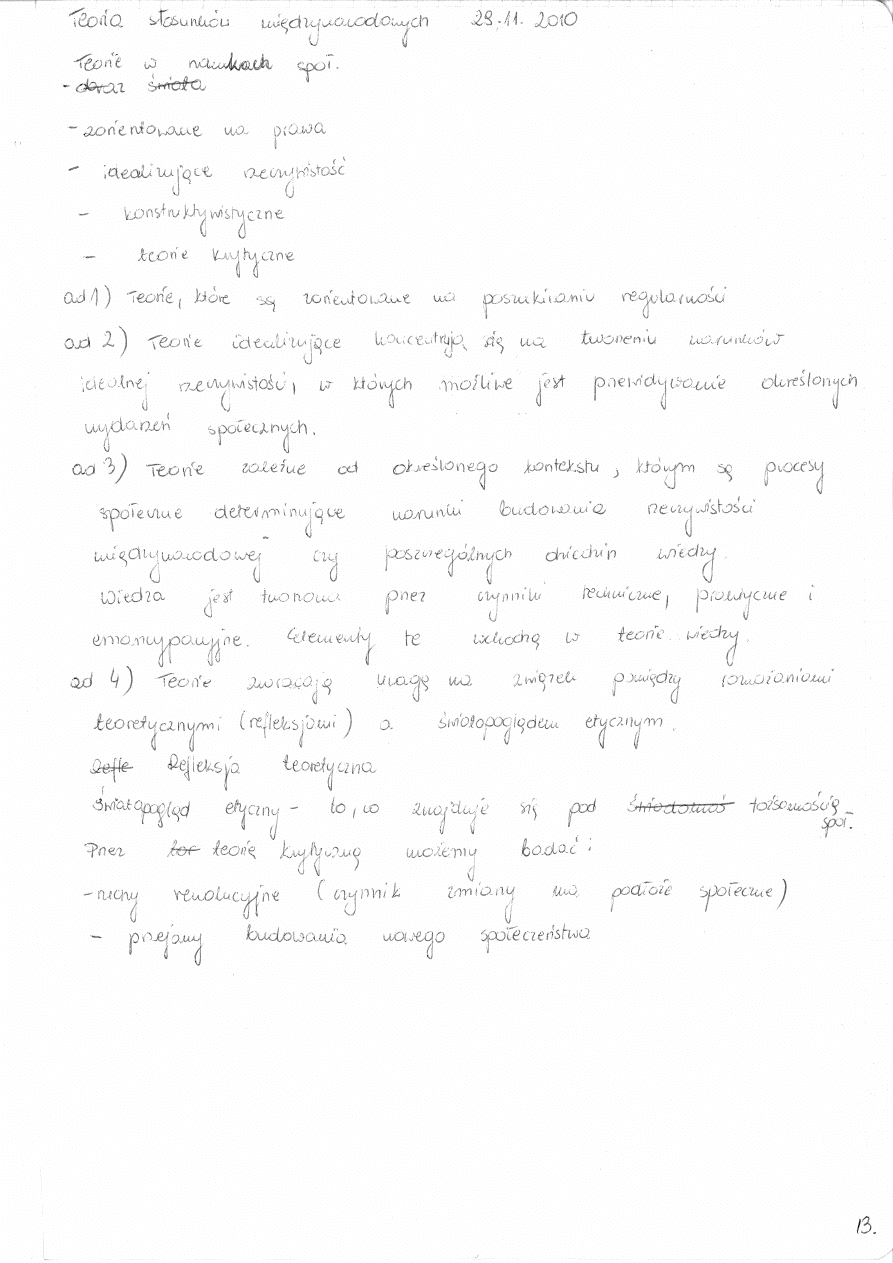 Teoria stosunków międzynarodowych 29.11.2010
Teorie w naukach społ.
- obraz świata
- zorientowane na prawa
- idealizujące rzeczywistość
- konstruktywistyczne
- teorie krytyczne
ad 1) Teorie, które są zorientowane na poszukiwaniu regularności
ad 2) Teorie idealizujące koncentrują się na tworzeniu warunków
idealnej rzeczywistości, w których możliwe jest przewidywanie określonych
wydarzeń społecznych.
ad 3) Teorie zależne od określonego kontekstu, którym są procesy
społeczne determinujące warunki budowania rzeczywistości
międzynarodowej czy poszczególnych dziedzin wiedzy.
Wiedza jest tworzona przez czynniki techniczne, praktyczne i
emancypacyjne. Elementy te wchodzą w teorie wiedzy.
ad 4) Teorie zwracają uwagę na związek pomiędzy rozważaniami
teoretycznymi (refleksjami) a światopoglądem etycznym.
Refle Refleksja teoretyczna
Światopogląd etyczny - to, co znajduje się pod świadomoś tożsamością
społ.
Przez teorię krytyczną możemy badać:
- ruchy rewolucyjne (czynnik zmiany ma podłoże społeczne)
- przejawy budowania nowego społeczeństwa
13.